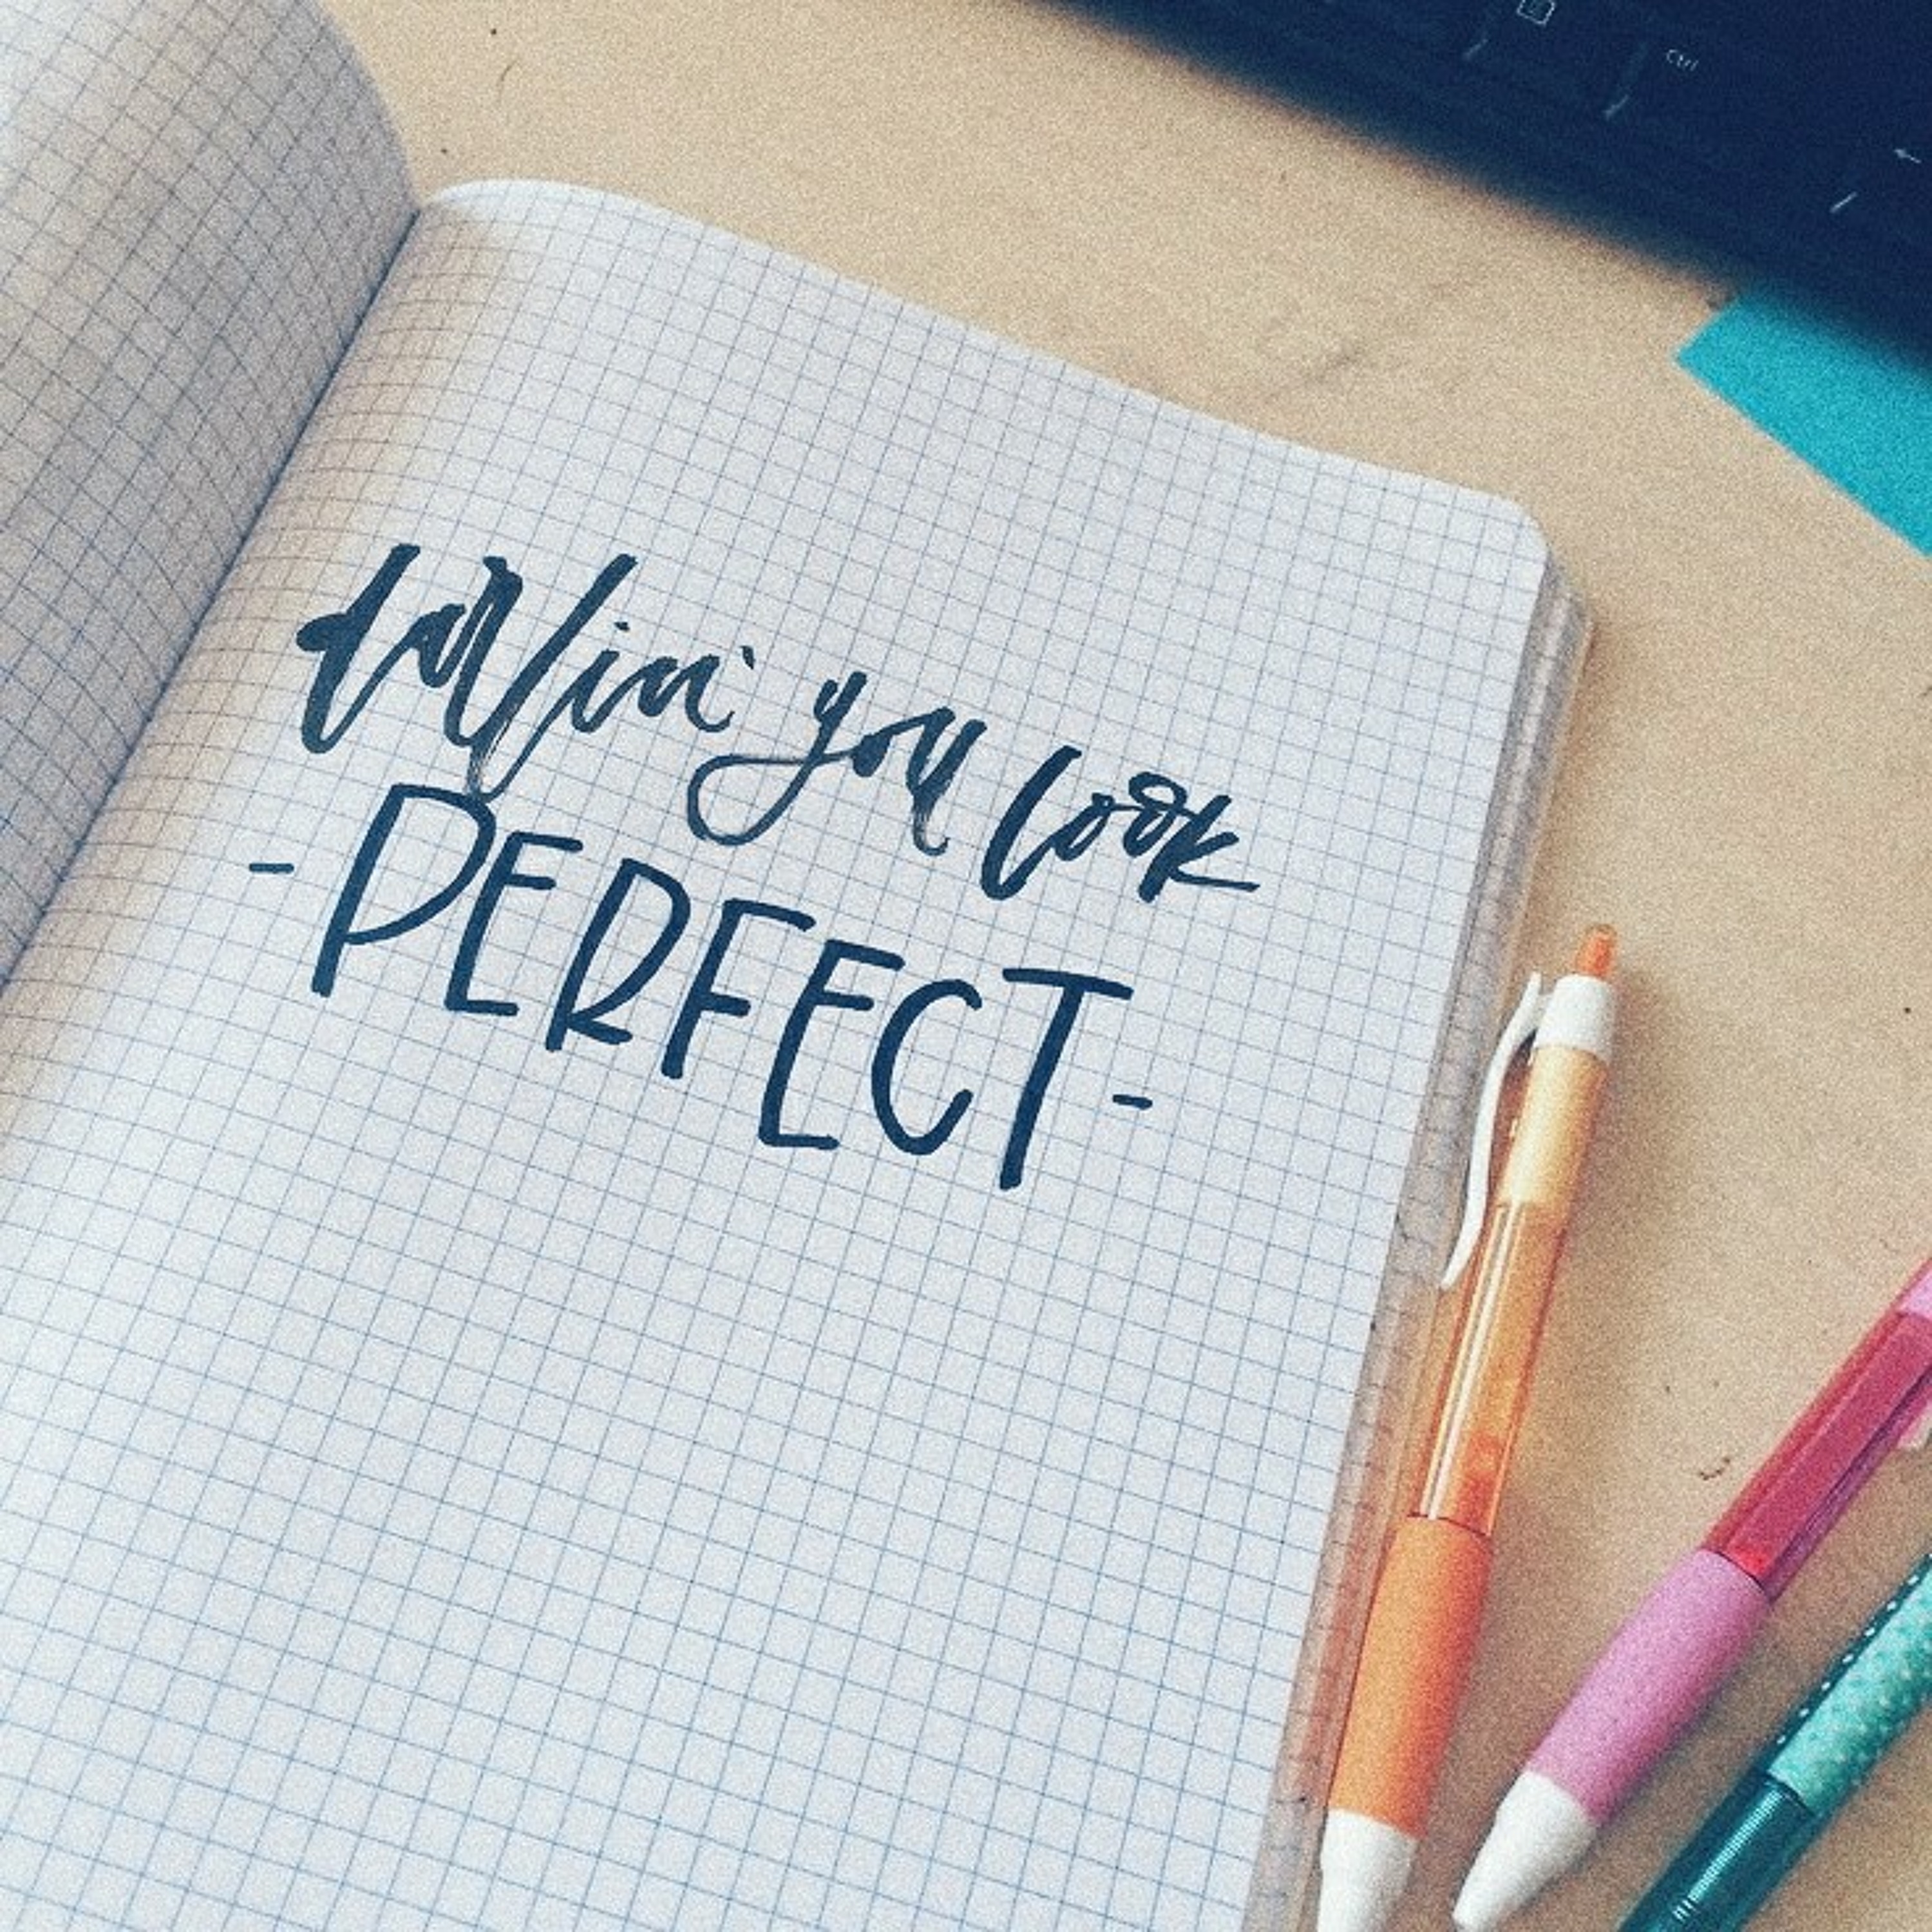 Ctrl
darlin' you look
- PERFECT -